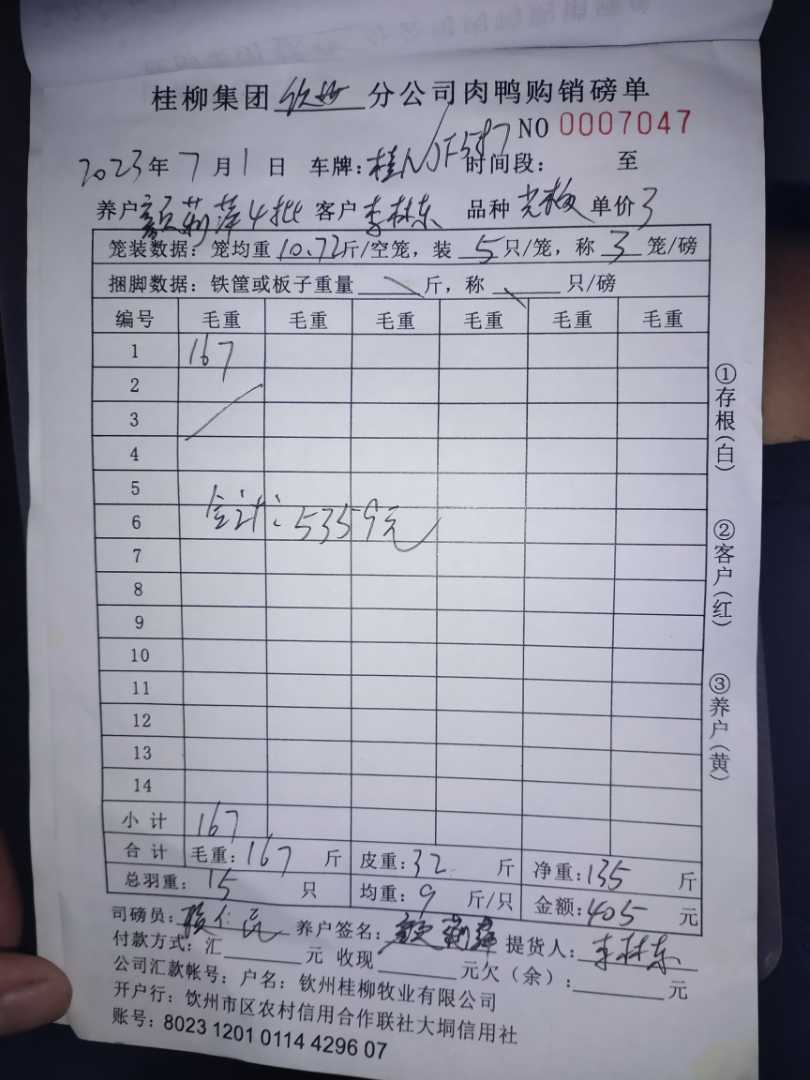 桂柳集团 钦州 分公司肉鸭购销磅单
NO 0007047
2023年 7月 1日 车牌: 时间段: 至
养户 颜莉萍4批 客户 李林东 品种 单价 3
笼装数据: 笼均重 10.72斤/空笼, 装 5只/笼, 称 3 笼/磅
捆脚数据: 铁筐或板子重量 斤, 称 只/磅
编号 毛重 毛重 毛重 毛重 毛重 毛重
1 167
2
3
4
5
合计: 5359元
6
7
8
9
10
11
12
13
14
小计 167
合计 毛重: 167 斤 皮重: 32 斤 净重: 135 斤
总羽重: 15 只 均重: 9 斤/只 金额: 405 元
司磅员: 养户签名: 颜莉萍 提货人: 李林东
付款方式: 汇 元 收现 元欠(余): 元
公司汇款帐号: 户名: 钦州桂柳牧业有限公司
开户行: 钦州市区农村信用合作联社大垌信用社
账号: 8023 1201 0114 4296 07
①存根(白)
②客户(红)
③养户(黄)